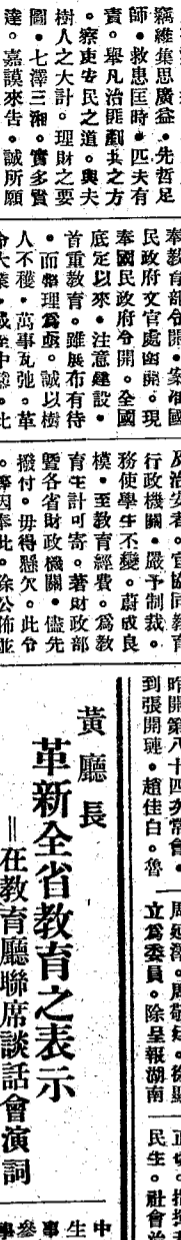 竊維集思廣益。先哲足
師。救患匡時。匹夫有
責。舉凡治匪剿共之方
。察吏安民之道。與夫
樹人之大計。理財之要
圖。七澤三湘。實多賢
達。嘉謨來告。誠所願
奉教育部令開。案准國
民政府文官處函開。現
奉國民政府令開。全國
底定以來。注意建設。
首重教育。雖展布有待
。而整理為亟。誠以樹
人不穫。萬事瓦弛。革
及治安者。宜協同教育
行政機關。嚴予制裁。
務使學生不變。蔚成良
模。至教育經費。為教
育生計可寄。著財政部
暨各省財政機關。儘先
撥付。毋得懸欠。此令
。等因奉此。除公佈並
昨開第八十四次常會。
到張開璉。趙佳白。魯
立為委員。除呈報湖南
民生。社會治
黃廳長
革新全省教育之表示
＝在教育廳聯席談話會演詞